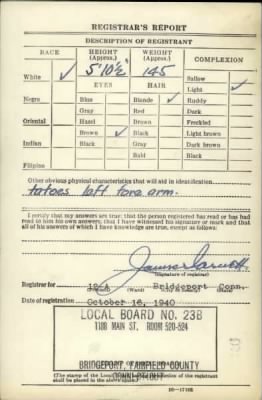 REGISTRAR'S REPORT
DESCRIPTION OF REGISTRANT
RACE HEIGHT (Approx.) WEIGHT (Approx.) COMPLEXION
White ✓ 5'10½" 145 Sallow
EYES HAIR Light ✓
Negro Blue Blonde ✓ Ruddy
Gray Red Dark
Oriental Hazel Brown Freckled
Brown ✓ Black Light brown
Indian Black Gray Dark brown
Bald Black
Filipino
Other obvious physical characteristics that will aid in identification
tatoes left fore arm.
I certify that my answers are true; that the person registered has read or has had
read to him his own answers; that I have witnessed his signature or mark and that
all of his answers of which I have knowledge are true, except as follows:
(Signature of registrar)
Registrar for Bridgeport Conn.
(Precinct) (Ward) (City or county) (State)
Date of registration October 16, 1940
LOCAL BOARD NO. 23B
1188 MAIN ST. ROOM 520-524
BRIDGEPORT, FAIRFIELD COUNTY
CONNECTICUT
(The stamp of the Local Board of the registrant
shall be placed in the above space.)